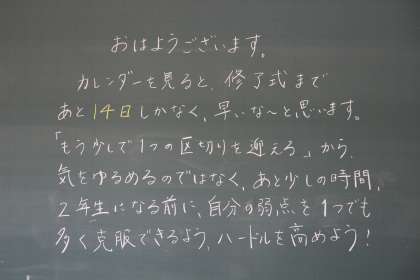 おはようございます。
カレンダーを見ると、修了式まで
あと14日しかなく、早いな～と思います。
「もう少しで1つの区切りを迎える」から、
気をゆるめるのではなく、あと少しの時間、
2年生になる前に、自分の弱点を1つでも
多く克服できるよう、ハードルを高めよう！